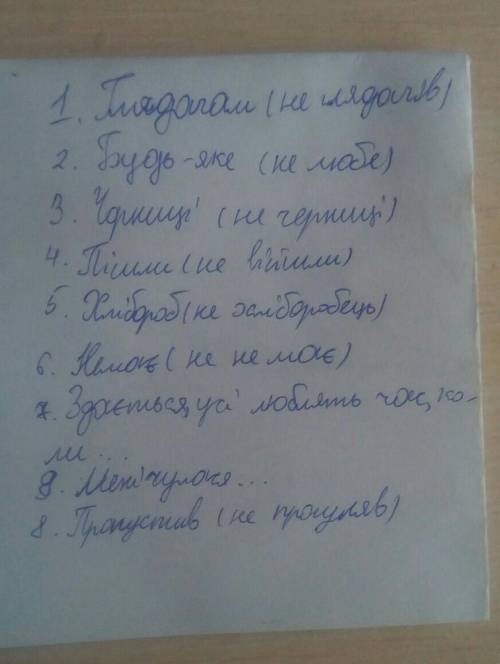 1. Глядачам (не глядачяв)
2. Будь-яке (не любе)
3. Чорниці (не черниці)
4. Пішли (не війшли)
5. Хлібороб (не хліборобець)
6. Немає (не не має)
7. Здається, усі люблять час, ко-
ли...
8. Мені чулося...
8. Пропустив (не прогуляв)